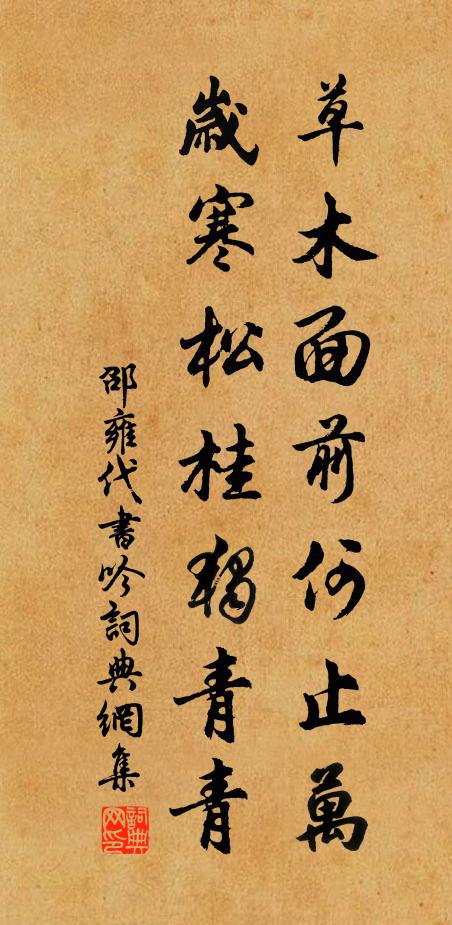 草木面前何止萬
歲寒松桂獨青青
邵雍代書吟詞典網集
詞典網印